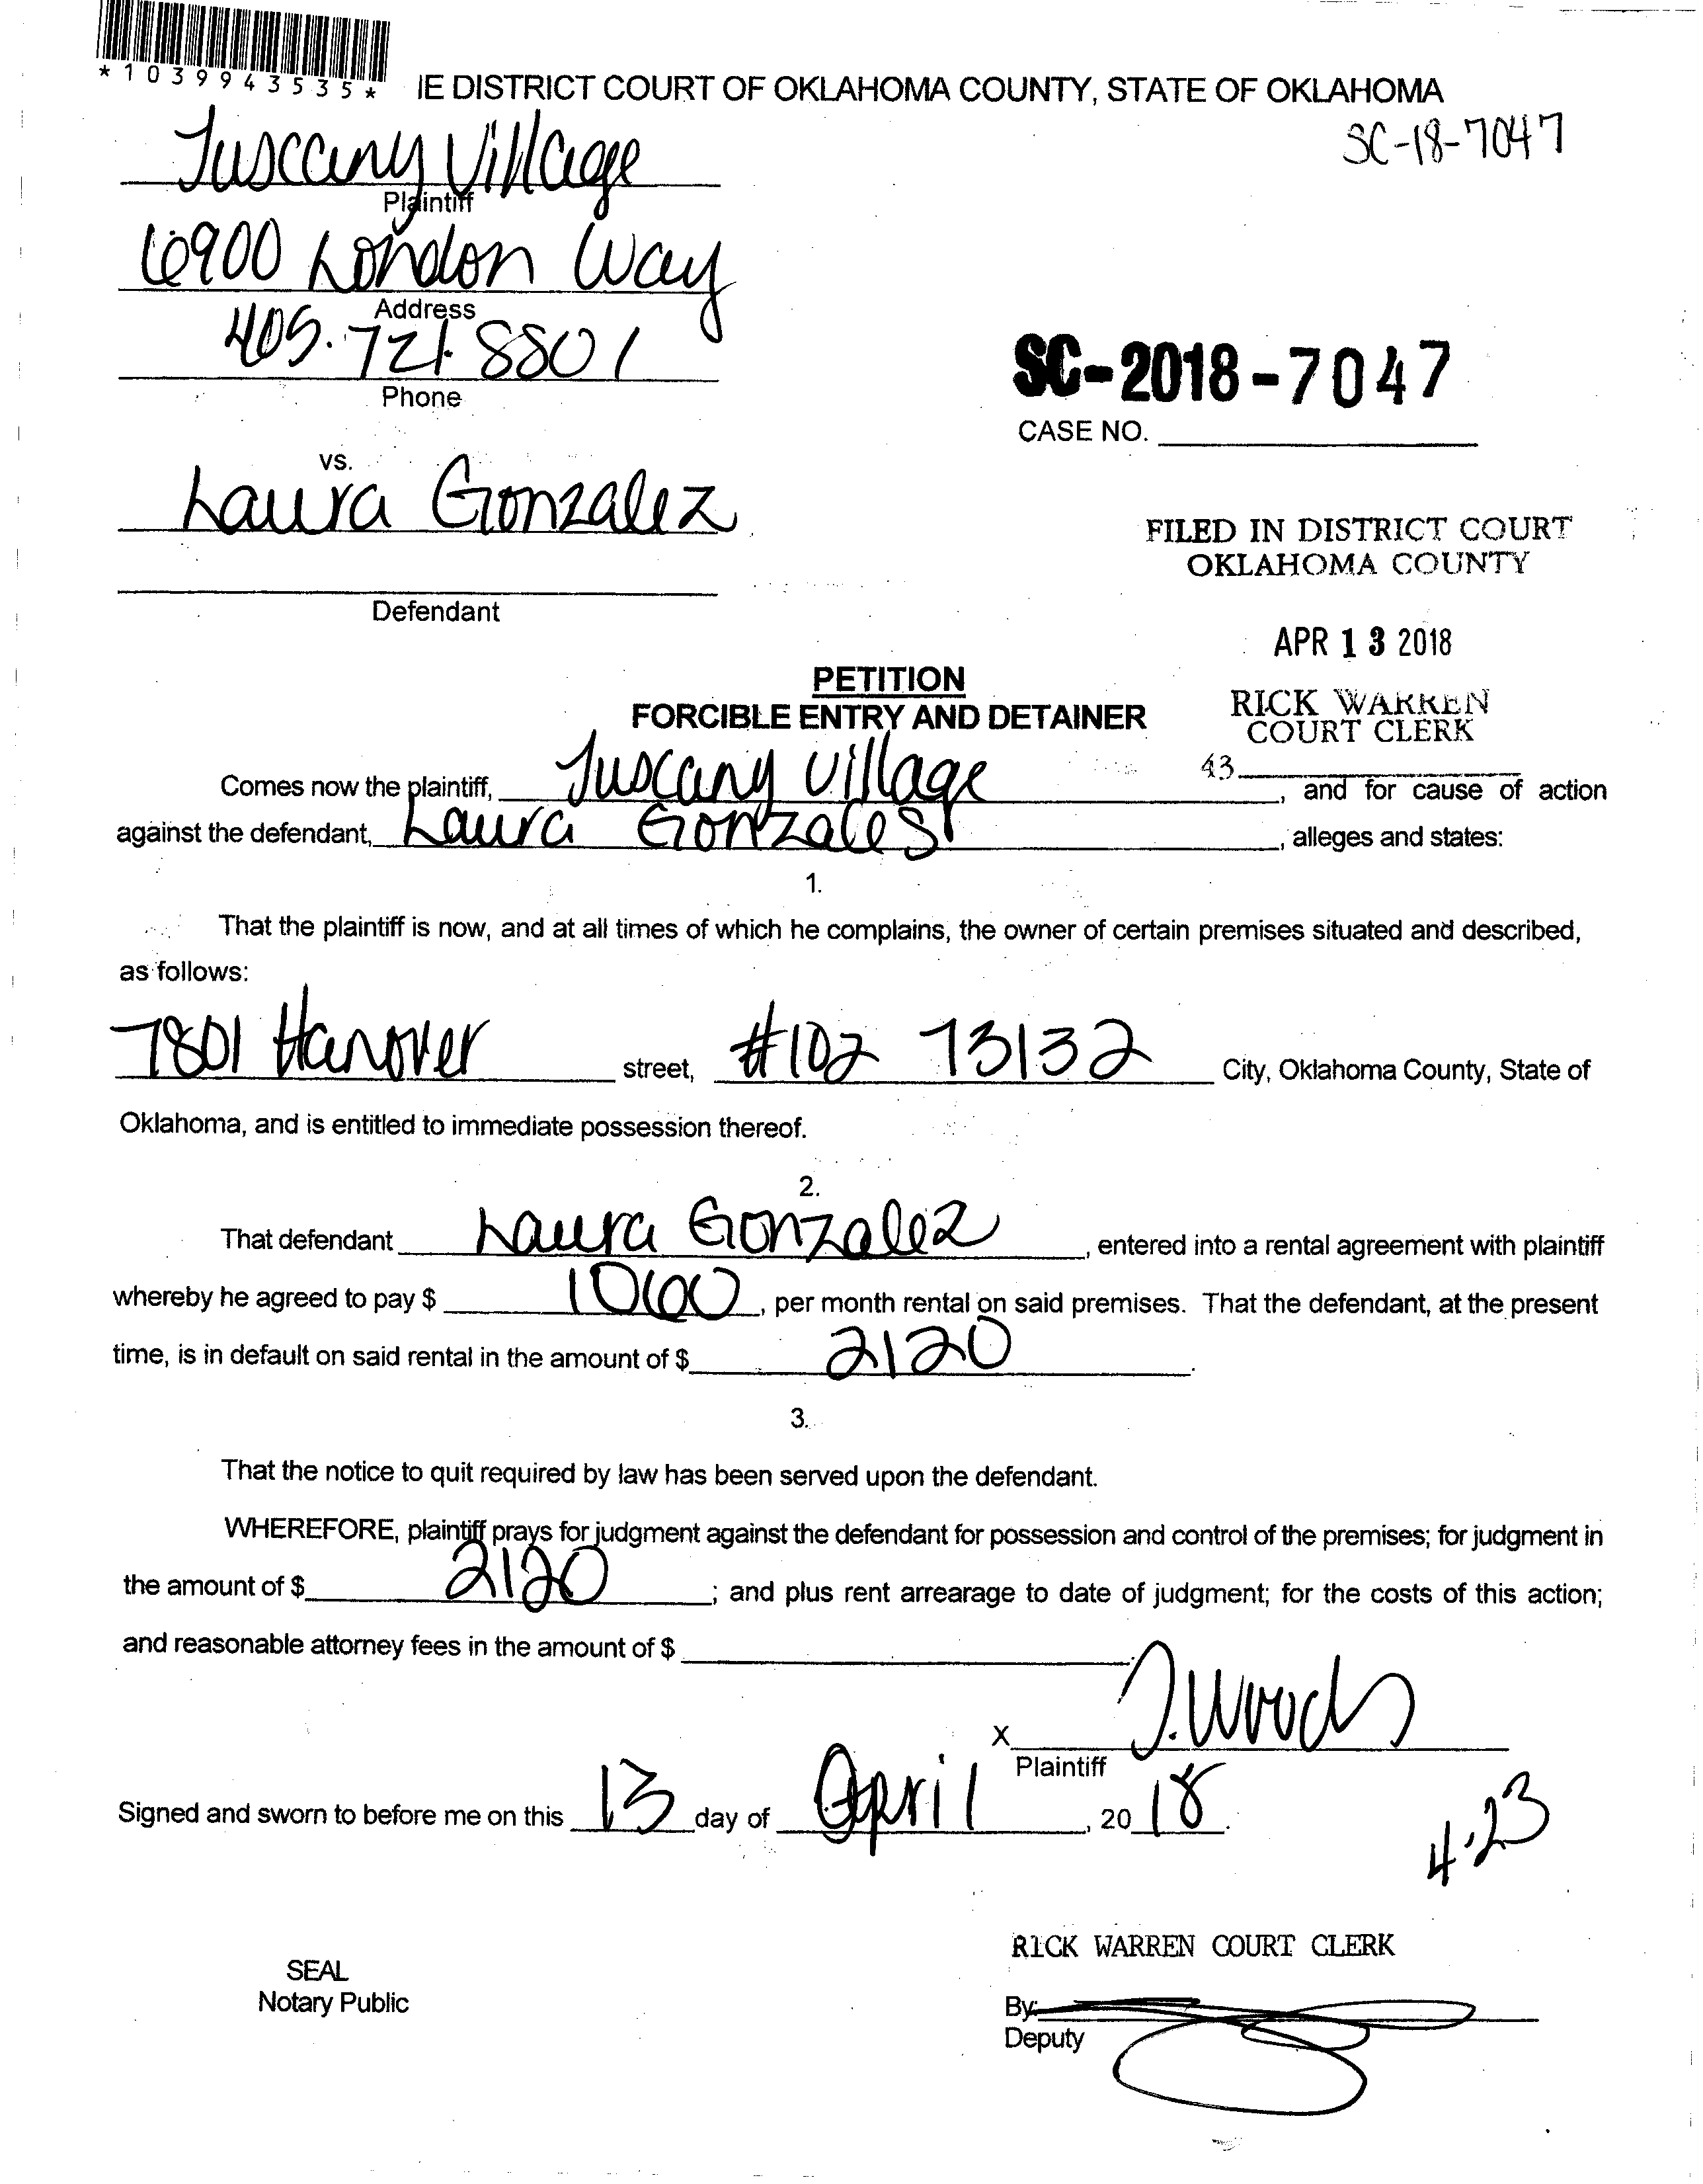 *1039943535*
IE DISTRICT COURT OF OKLAHOMA COUNTY, STATE OF OKLAHOMA
SC-18-7047
Tuscany Village
Plaintiff
6900 London Way
Address
405.721.8801
Phone
SC-2018-7047
CASE NO.
vs.
Laura Gonzalez
Defendant
FILED IN DISTRICT COURT
OKLAHOMA COUNTY
APR 13 2018
RICK WARREN
COURT CLERK
43
PETITION
FORCIBLE ENTRY AND DETAINER
Comes now the plaintiff, Tuscany Village, and for cause of action
against the defendant, Laura Gonzales, alleges and states:
1.
That the plaintiff is now, and at all times of which he complains, the owner of certain premises situated and described,
as follows:
7801 Hanover street, #102 73132 City, Oklahoma County, State of
Oklahoma, and is entitled to immediate possession thereof.
2.
That defendant Laura Gonzalez, entered into a rental agreement with plaintiff
whereby he agreed to pay $ 1060, per month rental on said premises. That the defendant, at the present
time, is in default on said rental in the amount of $ 2120.
3.
That the notice to quit required by law has been served upon the defendant.
WHEREFORE, plaintiff prays for judgment against the defendant for possession and control of the premises; for judgment in
the amount of $ 2120; and plus rent arrearage to date of judgment; for the costs of this action;
and reasonable attorney fees in the amount of $
X J. Woods
Plaintiff
Signed and sworn to before me on this 13 day of April, 2018.
4.23
RICK WARREN COURT CLERK
SEAL
Notary Public
By:
Deputy